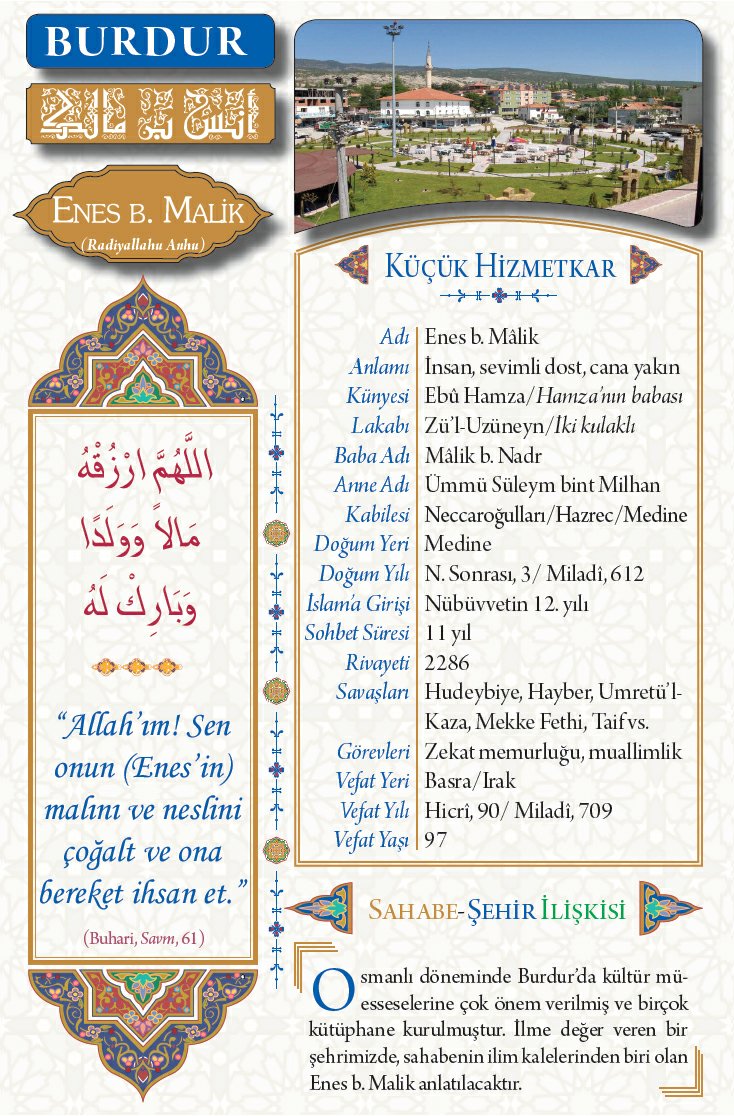 BURDUR
أنس بن مالك
ENES B. MALİK
(Radiyallahu Anhu)
اللَّهُمَّ ارْزُقْهُ
مَالاً وَوَلَدًا
وَبَارِكْ لَهُ
“Allah’ım! Sen
onun (Enes’in)
malını ve neslini
çoğalt ve ona
bereket ihsan et.”
(Buhari, Savm, 61)
KÜÇÜK HİZMETKAR
Adı Enes b. Mâlik
Anlamı İnsan, sevimli dost, cana yakın
Künyesi Ebû Hamza/Hamza’nın babası
Lakabı Zü’l-Uzüneyn/İki kulaklı
Baba Adı Mâlik b. Nadr
Anne Adı Ümmü Süleym bint Milhan
Kabilesi Neccaroğulları/Hazrec/Medine
Doğum Yeri Medine
Doğum Yılı N. Sonrası, 3/ Miladî, 612
İslam’a Girişi Nübüvvetin 12. yılı
Sohbet Süresi 11 yıl
Rivayeti 2286
Savaşları Hudeybiye, Hayber, Umretü’l-
Kaza, Mekke Fethi, Taif vs.
Görevleri Zekat memurluğu, muallimlik
Vefat Yeri Basra/Irak
Vefat Yılı Hicrî, 90/ Miladî, 709
Vefat Yaşı 97
SAHABE-ŞEHİR İLİŞKİSİ
Osmanlı döneminde Burdur’da kültür mü-
esseselerine çok önem verilmiş ve birçok
kütüphane kurulmuştur. İlme değer veren bir
şehrimizde, sahabenin ilim kalelerinden biri olan
Enes b. Malik anlatılacaktır.